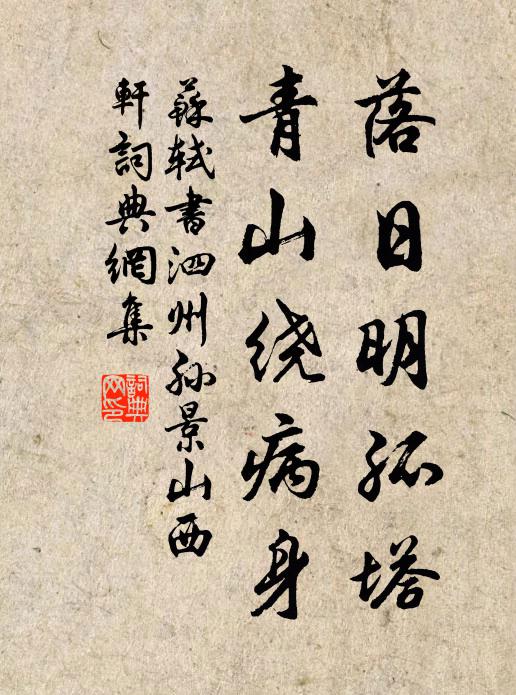 落日明孤塔
青山绕病身
蘇軾書泗州孙景山西
軒詞典網集
詞典
网印